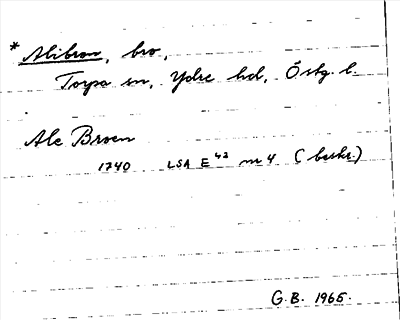 * Alibron, bro,
Torpa sn, Ydre hd, Östg. l.
Ale Broen
1740 LSA E 43 nr 4 (beskr.)
G.B. 1965.